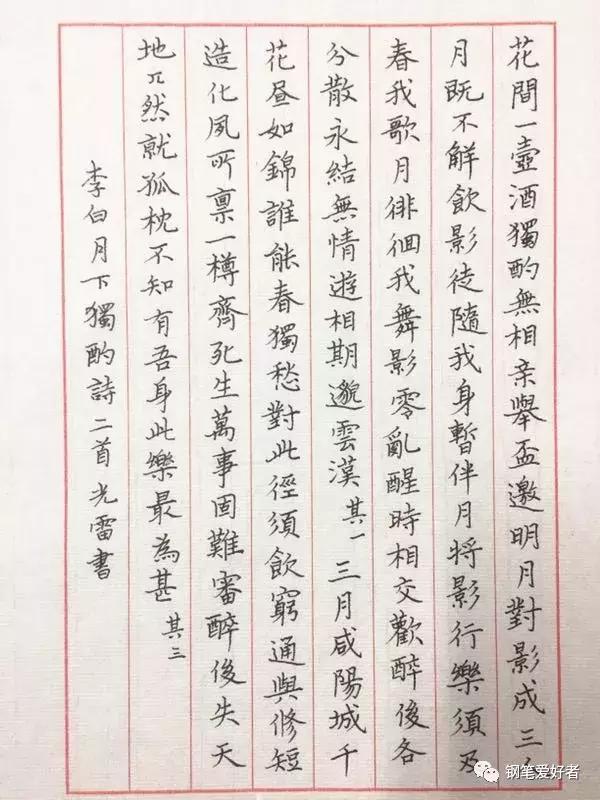 花間一壺酒獨酌無相亲舉盃邀明月對影成三人
月既不解飲影徒隨我身暫伴月将影行樂須及
春我歌月徘徊我舞影零亂醒時相交歡醉後各
分散永結無情遊相期邈雲漢其一三月咸陽城千
花昼如錦誰能春獨愁對此徑須飲窮通與修短
造化夙所禀一樽齊死生萬事固難審醉後失天
地兀然就孤枕不知有吾身此樂最為甚其三
李白月下獨酌詩二首光雷書
钢笔爱好者